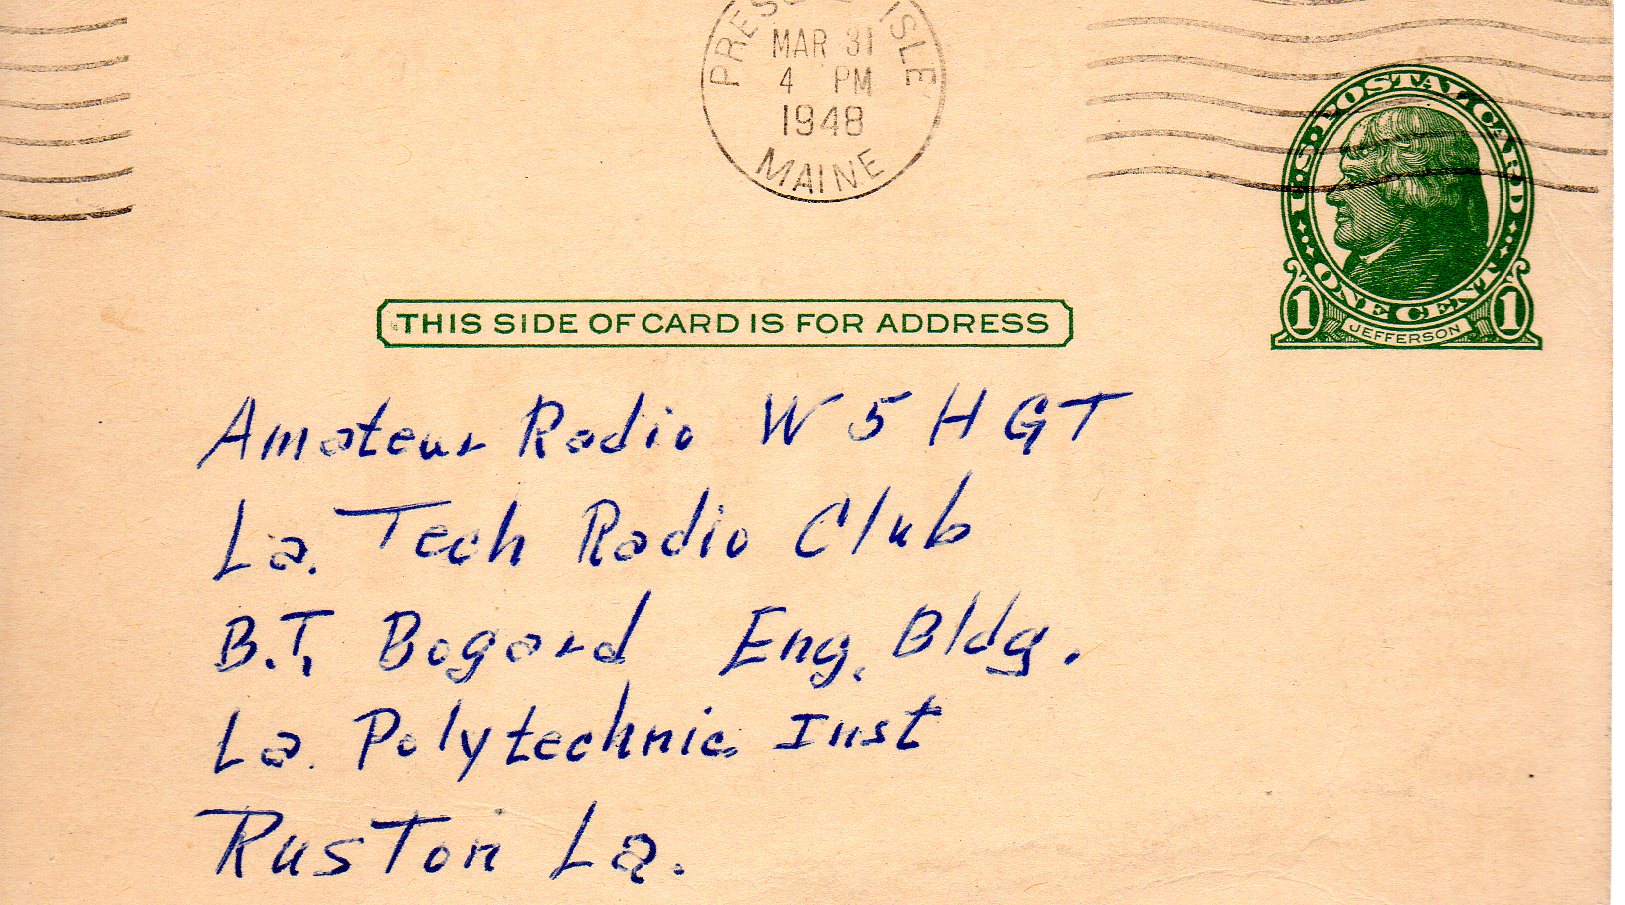 PRESQUE ISLE
MAR 31
4 PM
1948
MAINE
U.S. POSTAL CARD
ONE CENT
1 JEFFERSON 1
THIS SIDE OF CARD IS FOR ADDRESS
Amateur Radio W5HGT
La. Tech Radio Club
B.T. Bogard Eng. Bldg.
La. Polytechnic Inst
Ruston La.